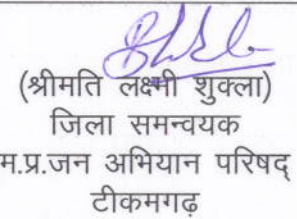 (श्रीमति लक्ष्मी शुक्ला)
जिला समन्वयक
म.प्र.जन अभियान परिषद्
टीकमगढ़